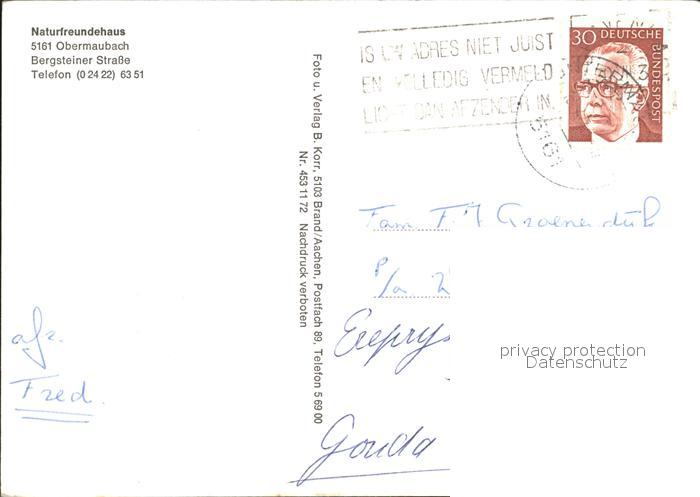 Naturfreundehaus
5161 Obermaubach
Bergsteiner Straße
Telefon (0 24 22) 63 51
IS UW ADRES NIET JUIST
EN VOLLEDIG VERMELD
LICHT DAN AFZENDER IN.
30 DEUTSCHE
BUNDESPOST
5161
Foto u. Verlag B. Korr, 5103 Brand/Aachen, Postfach 89, Telefon 5 69 00
Nr. 453 11 72 Nachdruck verboten
Fam. F.
P/a
Gouda
afz.
Fred.
privacy protection
Datenschutz